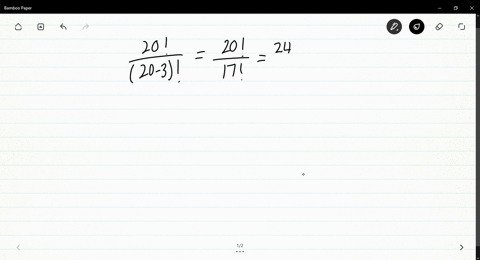 Bamboo Paper
20! / (20-3)! = 20! / 17! = 24
1/2